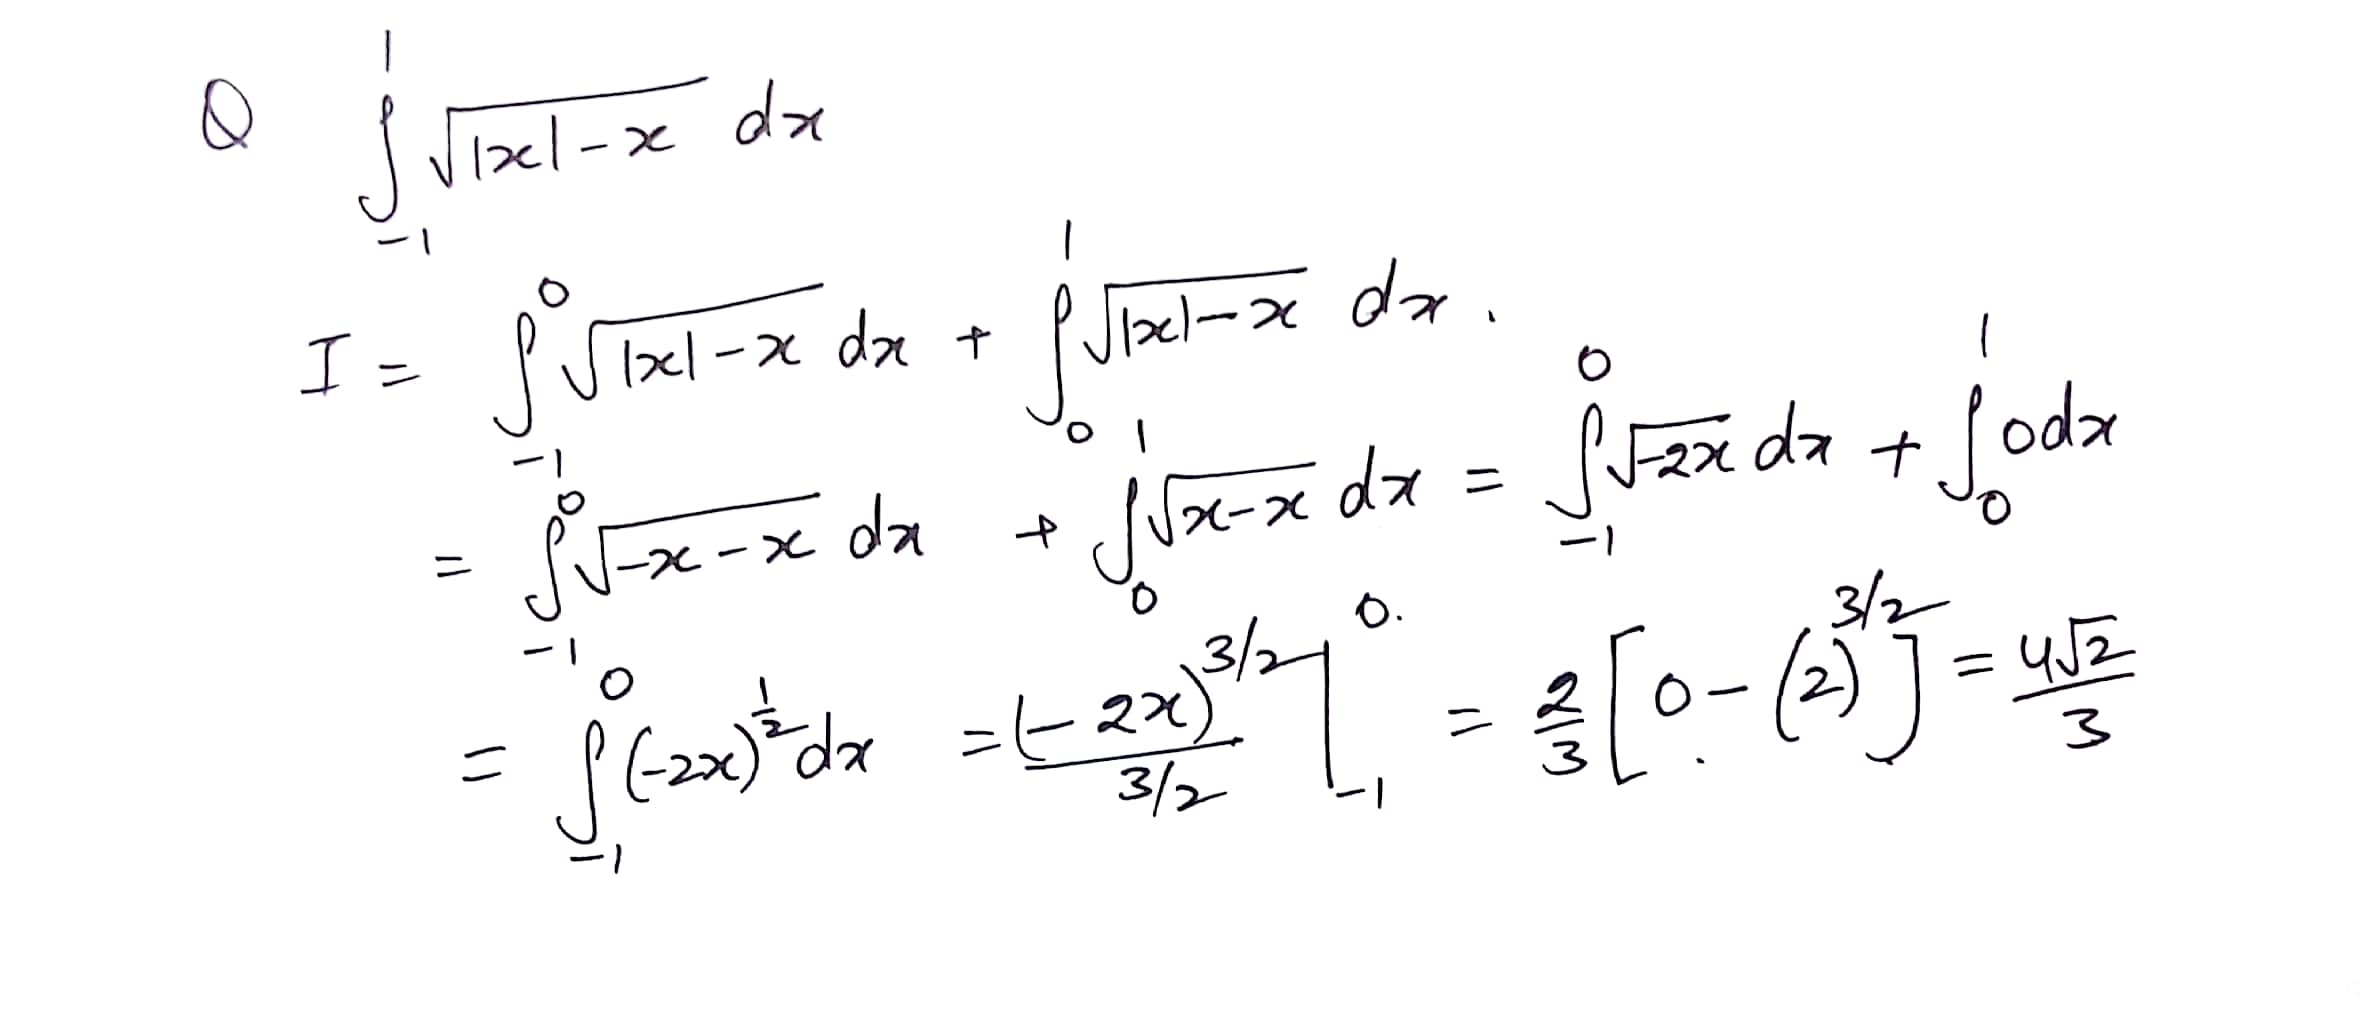 Q ∫_{-1}^{1} √(|x|-x) dx
I = ∫_{-1}^{0} √(|x|-x) dx + ∫_{0}^{1} √(|x|-x) dx.
= ∫_{-1}^{0} √(-x-x) dx + ∫_{0}^{1} √(x-x) dx = ∫_{-1}^{0} √(-2x) dx + ∫_{0}^{1} 0dx
= ∫_{-1}^{0} (-2x)^{1/2} dx = (-2x)^{3/2} / (3/2) |_{-1}^{0.} = 2/3 [0-(2)^{3/2}] = 4√2/3